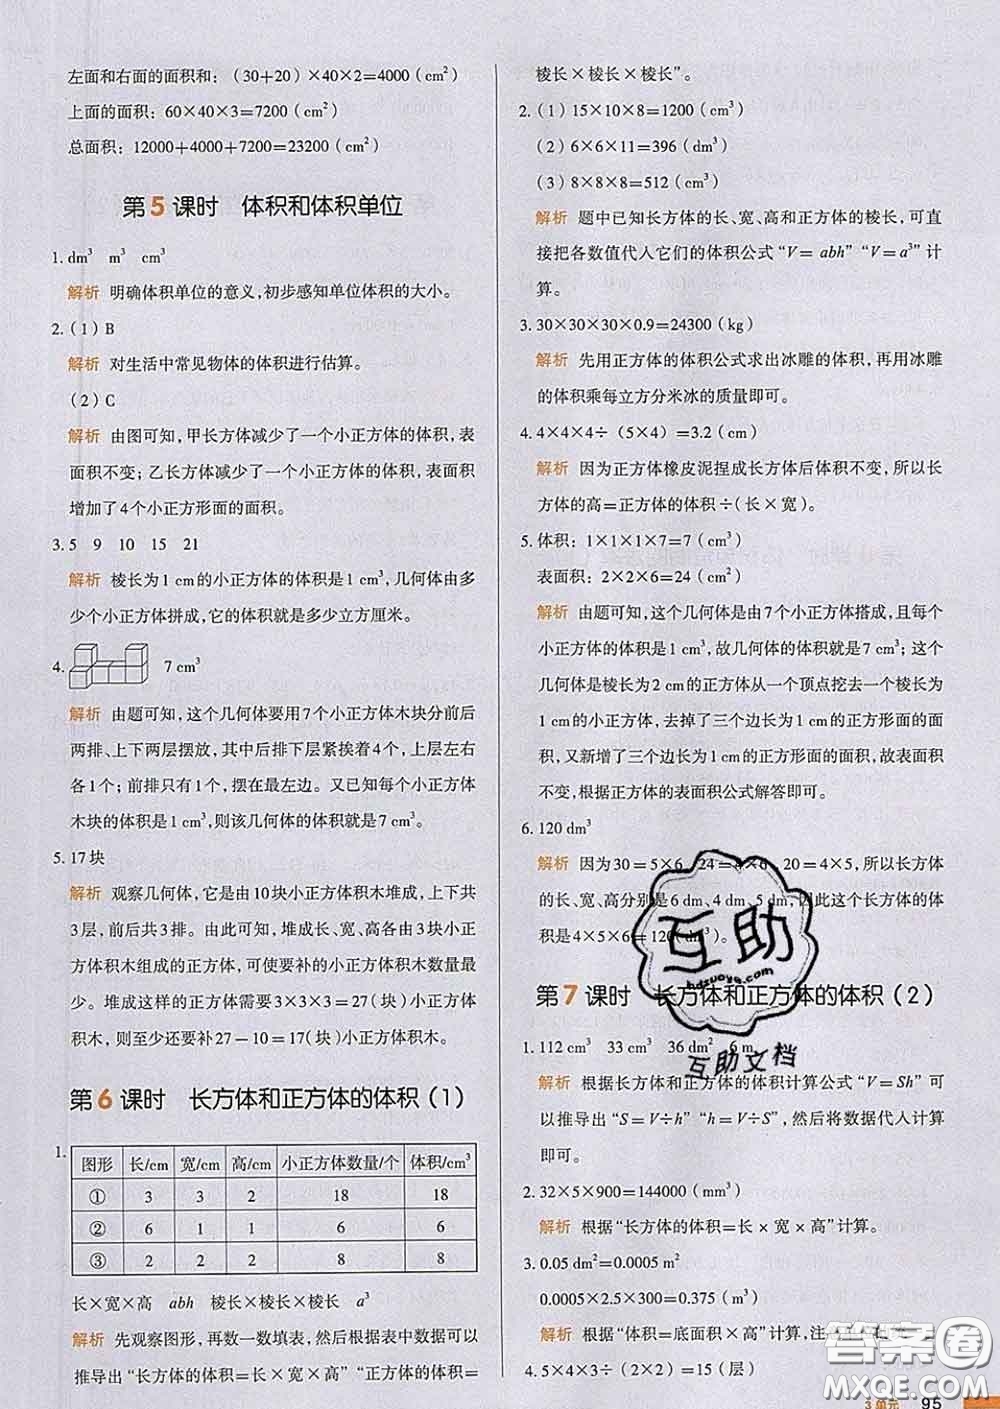 左面和右面的面积和：(30+20)×40×2=4000(cm²)
上面的面积：60×40×3=7200(cm²)
总面积：12000+4000+7200=23200(cm²)
第5课时 体积和体积单位
1. dm³ m³ cm³
解析 明确体积单位的意义，初步感知单位体积的大小。
2.(1)B
解析 对生活中常见物体的体积进行估算。
(2)C
解析 由图可知，甲长方体减少了一个小正方体的体积，表
面积不变；乙长方体减少了一个小正方体的体积，表面积
增加了4个小正方形面的面积。
3.5 9 10 15 21
解析 棱长为1 cm的小正方体的体积是1 cm³，几何体由多
少个小正方体拼成，它的体积就是多少立方厘米。
4. 7 cm³
解析 由题可知，这个几何体要用7个小正方体木块分前后
两排、上下两层摆放，其中后排下层紧挨着4个，上层左右
各1个；前排只有1个，在最左边。又已知每个小正方体
木块的体积是1 cm³，则该几何体的体积就是7 cm³。
5.17块
解析 观察几何体，它是由10块小正方体积木堆成，上下共
3层，前后共3排。由此可知，堆成长、宽、高各由3块小正
方体积木组成的正方体，可使要补的小正方体积木数量最
少。堆成这样的正方体需要3×3×3=27(块)小正方体
积木，则至少还要补27-10=17(块)小正方体积木。
第6课时 长方体和正方体的体积(1)
1.
图形 长/cm 宽/cm 高/cm 小正方体数量/个 体积/cm³
① 3 3 2 18 18
② 6 1 1 6 6
③ 2 2 2 8 8
长×宽×高 abh 棱长×棱长×棱长 a³
解析 先观察图形，再数一数填表，然后根据表中数据可以
推导出“长方体的体积=长×宽×高”“正方体的体积=
棱长×棱长×棱长”。
2.(1)15×10×8=1200(cm³)
(2)6×6×11=396(dm³)
(3)8×8×8=512(cm³)
解析 题中已知长方体的长、宽、高和正方体的棱长，可直
接把各数值代人它们的体积公式“V=abh”“V=a³”计
算。
3.30×30×30×0.9=24300(kg)
解析 先用正方体的体积公式求出冰雕的体积，再用冰雕
的体积乘每立方分米冰的质量即可。
4.4×4×4÷(5×4)=3.2(cm)
解析 因为正方体橡皮泥捏成长方体后体积不变，所以长
方体的高=正方体的体积÷(长×宽)。
5.体积：1×1×1×7=7(cm³)
表面积：2×2×6=24(cm²)
解析 由题可知，这个几何体是由7个小正方体搭成，且每个
小正方体的体积是1 cm³，故几何体的体积就是7 cm³；这个
几何体是棱长为2 cm的正方体从一个顶点挖去一个棱长为
1 cm的小正方体，去掉了三个边长为1 cm的正方形面的面
积，又新增了三个边长为1 cm的正方形面的面积，故表面积
不变，根据正方体的表面积公式解答即可。
6.120 dm³
解析 因为30=5×6，24=4×6，20=4×5，所以长方体
的长、宽、高分别是6 dm、4 dm、5 dm，因此这个长方体的体
积是4×5×6=120(dm³)。
互助
hdzuoye.com
互助文档
第7课时 长方体和正方体的体积(2)
1.112 cm³ 33 cm³ 36 dm² 6 m
解析 根据长方体和正方体的体积计算公式“V=Sh”可
以推导出“S=V÷h”“h=V÷S”，然后将数据代人计算
即可。
2.32×5×900=144000(mm³)
解析 根据“长方体的体积=长×宽×高”计算。
3.0.05 dm²=0.0005 m²
0.0005×2.5×300=0.375(m³)
解析 根据“体积=底面积×高”计算，注
4.5×4×3÷(2×2)=15(层)
3单元 95
答案圈
MXQE.COM